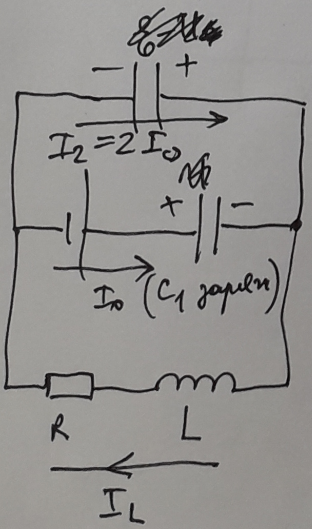 − +
I₂ = 2 I₀
+ −
I₀ (C₁ заряж)
R L
I_L